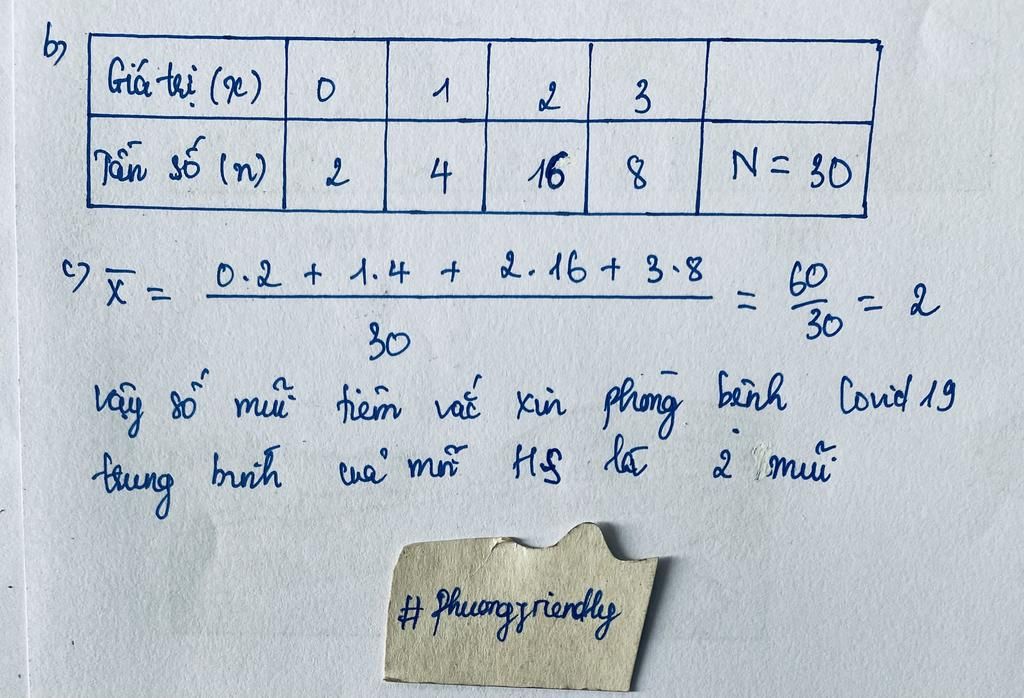 b)
Giá trị (x) 0 1 2 3
Tần số (n) 2 4 16 8 N = 30
c) X̅ = (0.2 + 1.4 + 2.16 + 3.8) / 30 = 60/30 = 2
Vậy số mũi tiêm vắc xin phòng bệnh Covid 19
trung bình của mỗi HS là 2 mũi
# phuongfriendly